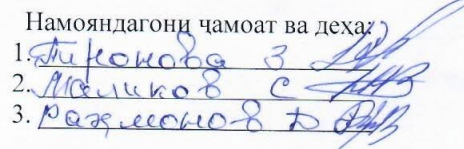 Намояндагони ҷамоат ва деҳа:
1. Пиронова З
2. Маликов С
3. Раҳмонов Д